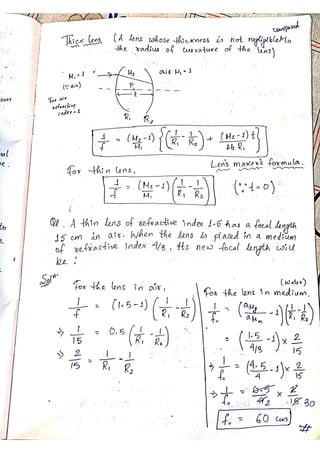 Thick lens (A lens whose thickness is not negligible compared to
the radius of curvature of the lens)
μ₁=1
(∵ air)
For air
refractive
index=1
μ₂
P
t
R₁ R₂
air μ₁=1
1/f = (μ₂-1)/μ₁ {(1/R₁ - 1/R₂) + (μ₂-1)t/μ₂R₁}
Len's maker's formula.
for thin lens,
1/f = (μ₂-1)/μ₁ (1/R₁ - 1/R₂) (∵ t=0)
Q. A thin lens of refractive index 1.5 has a focal length
15 cm in air. When the lens is placed in a medium
of refractive index 4/3, Its new focal length will
be :
Soln.
for the lens in air,
1/f = (1.5-1) (1/R₁ - 1/R₂)
⇒ 1/15 = 0.5 (1/R₁ - 1/R₂)
⇒ 2/15 = 1/R₁ - 1/R₂
(water)
for the lens in medium.
1/f₀ = (aμg/aμm - 1)(1/R₁ - 1/R₂)
= (1.5/4/3 - 1) × 2/15
⇒ 1/f₀ = (4.5/4 - 1) × 2/15
⇒ 1/f₀ = 0.5/42 × 2/15 30
f₀ = 60 cm
#